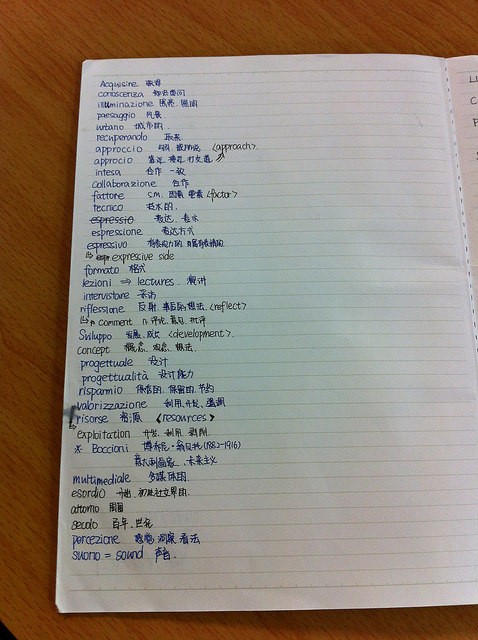 Acquisire 取得
conoscenza 知识
illuminazione 照明
paesaggio 风景
urbano 城市的
recuperando
approccio <approach>
approcio 靠近 接近 打交道
intesa 合作 一致
collaborazione 合作
fattore s.m. 因素 要素 <factor>
tecnico 技术的
espressio 表达
espressione 表达方式
espressivo
↳ expressive side
formato 格式
lezioni ⇒ lectures. 演讲
intervistare 采访
riflessione 反射 <reflect>
↳ n comment n. 评论, 批评
Sviluppo 发展, 成长 <development>.
concept 概念, 观念, 想法.
progettuale 设计
progettualità 设计能力
risparmio 保留的, 节约
valorizzazione 利用, 开发, 强调
risorse 资源 <resources>
exploitation 开发, 利用, 剥削
* Boccioni (1882-1916)
意大利画家, 未来主义
multimediale 多媒体的
esordio 开始, 初次
attorno 周围
secolo 百年, 世纪
percezione 感觉, 洞察, 看法
suono = sound 声音.
L
C